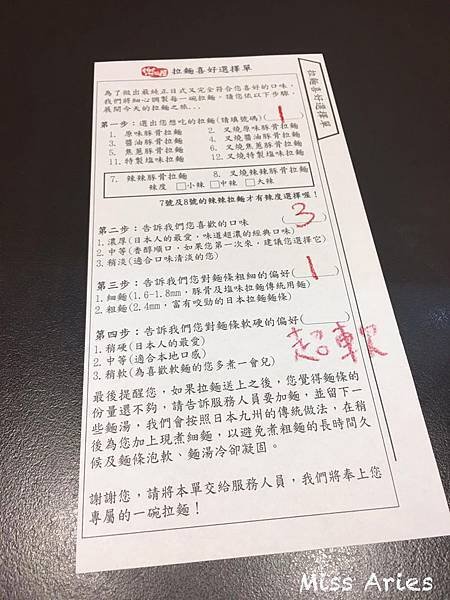 拉麵喜好選擇單
拉麵喜好選擇單
為了做出最純正日式又完全符合您喜好的口味，
我們將細心調製每一碗拉麵，請您依以下步驟，
展開今天的拉麵之旅...
第一步：選出您想吃的拉麵(請填號碼)(1)
1. 原味豚骨拉麵 2. 叉燒原味豚骨拉麵
3. 醬油豚骨拉麵 4. 叉燒醬油豚骨拉麵
5. 焦蔥豚骨拉麵 6. 叉燒焦蔥豚骨拉麵
11. 特製塩味拉麵 12. 叉燒特製塩味拉麵
7. 辣辣豚骨拉麵 8. 叉燒辣辣豚骨拉麵
辣度 □小辣 □中辣 □大辣
7號及8號的辣辣拉麵才有辣度選擇喔！
第二步：告訴我們您喜歡的口味 (3)
1. 濃厚(日本人的最愛，味道超濃的經典口味)
2. 中等(香醇順口，如果您第一次來，建議您選擇它)
3. 稍淡(適合口味清淡的您)
第三步：告訴我們您對麵條粗細的偏好(1)
1. 細麵(1.6-1.8mm，豚骨及塩味拉麵傳統用麵)
2. 粗麵(2.4mm，富有咬勁的日本拉麵麵條)
第四步：告訴我們您對麵條軟硬的偏好(超軟)
1. 稍硬(日本人的最愛)
2. 中等(適合本地口感)
3. 稍軟(為喜歡軟麵的您多煮一會兒)
最後提醒您，如果拉麵送上之後，您覺得麵條的
份量還不夠，請告訴服務人員要加麵，並留下一
些麵湯，我們會按照日本九州的傳統做法，在稍
後為您加上現煮細麵，以避免煮粗麵的長時間久
候及麵條泡軟、麵湯冷卻凝固。
謝謝您，請將本單交給服務人員，我們將奉上您
專屬的一碗拉麵！
Miss Aries